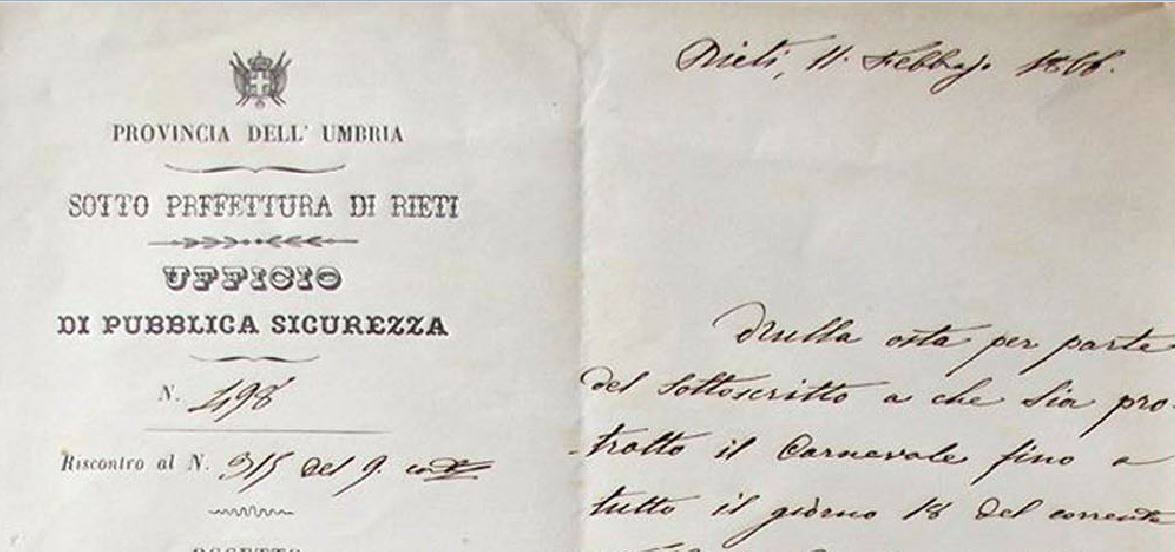 PROVINCIA DELL' UMBRIA
SOTTO PREFETTURA DI RIETI
UFFICIO
DI PUBBLICA SICUREZZA
N. 498
Riscontro al N. 315 del 9.
OGGETTO
Rieti, 11 Febbajo 1866.
Nulla osta per parte
del sottoscritto a che sia pro-
tratto il Carnevale fino a
tutto il giorno 18 del corrente